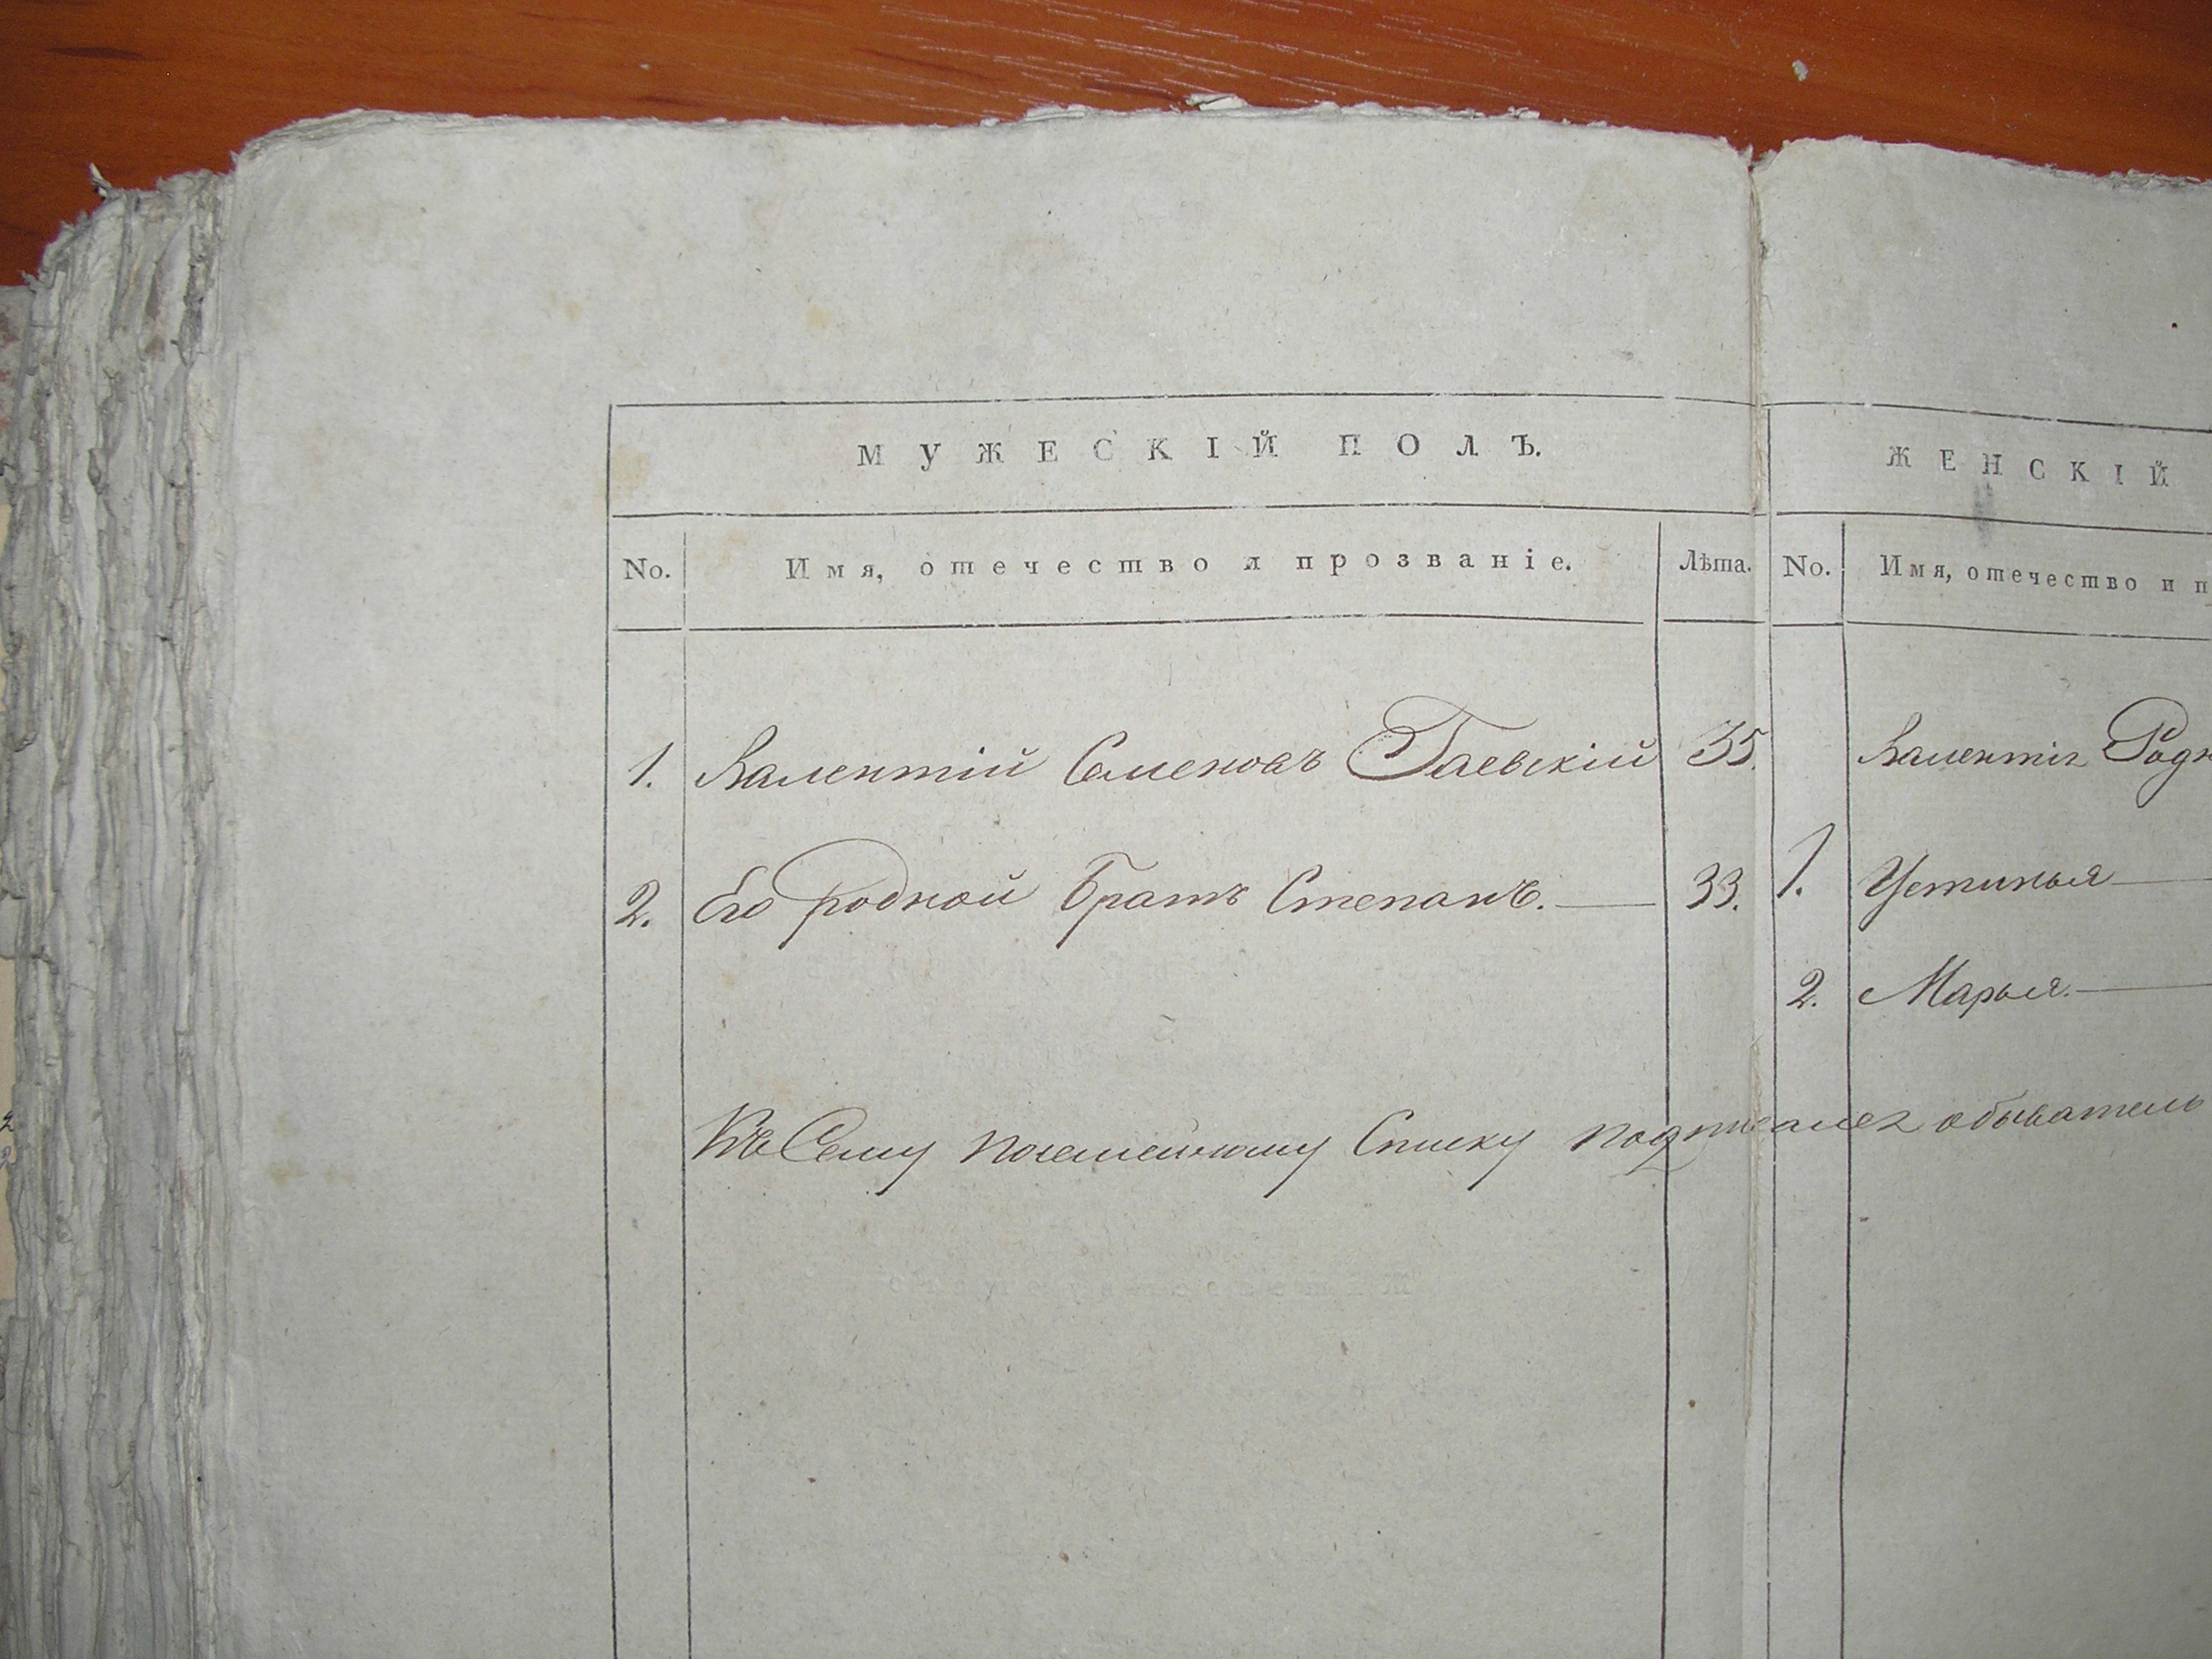 МУЖЕСКІЙ ПОЛЪ.
ЖЕНСКІЙ
No. Имя, отечество и прозваніе. Лѣта. No. Имя, отечество и п
1. Валентій Семеновъ Гаевскій 35. Валентія Родн
2. Его родной братъ Степанъ. — 33. 1. Устинья —
2. Марья. —
Къ Сему посемейному Списку подписался обыватель